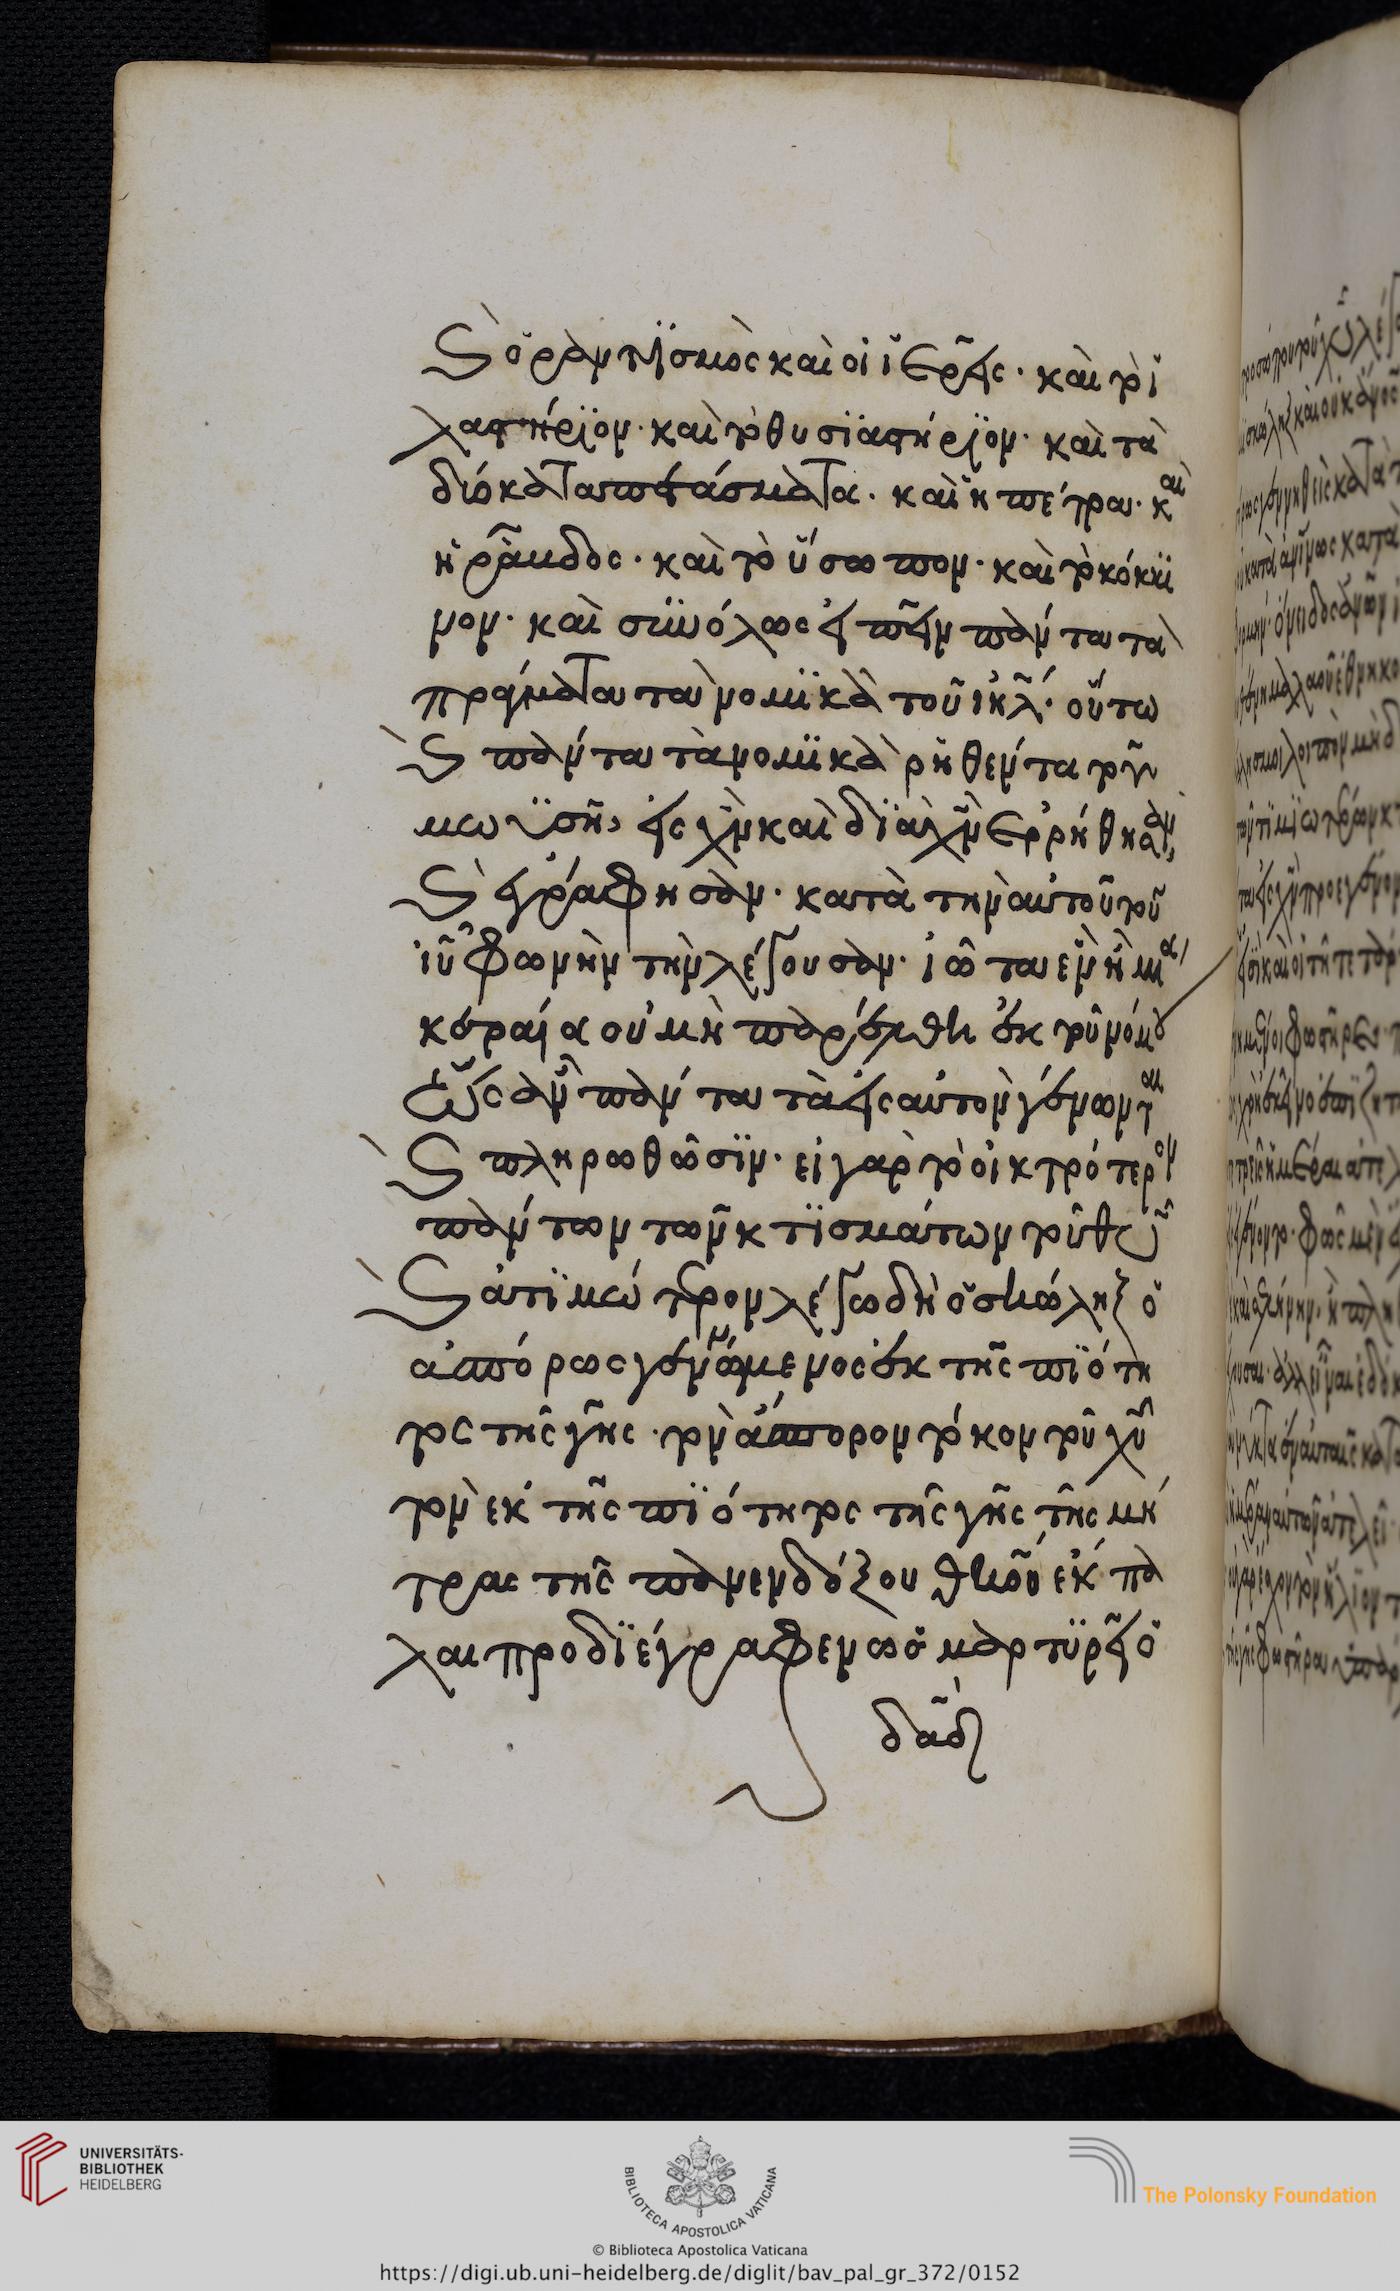 καὶ ὁ ῥαντϊσμὸς καὶ οἱ ϊερεῖς· καὶ τὸ ἱ
λαστήριον· καὶ τὸ θυσϊαστήριον· καὶ τὰ
δύο καταπετάσματα· καὶ ἡ πέτρα· καὶ
ἡ ῥάμδος· καὶ τὸ ὕσωπον· καὶ τὸ κόκκϊ
νον· καὶ συνόλως εἰπεῖν πάντα τὰ
πράγματα τὰ νομϊκὰ τοῦ ιηλ· οὕτω
καὶ πάντα τὰ νομϊκὰ ῥηθέντα τῶ
μωϋσῆ, εἰς χν καὶ διὰ χν ερρήθησαν,
καὶ ἐγράφησαν· κατὰ τὴν αὐτοῦ τοῦ
ιυ φωνὴν τὴν λέγουσαν· ἰῶτα ἓν ἢ μία
κεραία οὐ μὴ παρέλθη ἐκ τοῦ νόμου
ἕως ἂν πάντα τὰ εἰς αὐτὸν γένωνται
καὶ πληρωθῶσϊν· εἰ γὰρ τὸ οἰκτρότερον
πάντων τῶν κτϊσμάτων τοῦ θυ
καὶ ἀτϊμώτερον λέγω δὴ ὁ σκώληξ ὁ
ἀπόρως γεννώμενος ἐκ τῆς πϊότη
τος τῆς γῆς· τὸν ἄπορον τόκον τοῦ χυ
τὸν ἐκ τῆς πϊότητος τῆς γῆς τῆς μή
τρας τῆς πανενδόξου θκου ἐκ πά
λαι προδϊέγραφεν ὡς μαρτϋρεῖ ὁ
δαδ
UNIVERSITÄTS-
BIBLIOTHEK
HEIDELBERG
BIBLIOTECA APOSTOLICA VATICANA
© Biblioteca Apostolica Vaticana
The Polonsky Foundation
https://digi.ub.uni-heidelberg.de/diglit/bav_pal_gr_372/0152